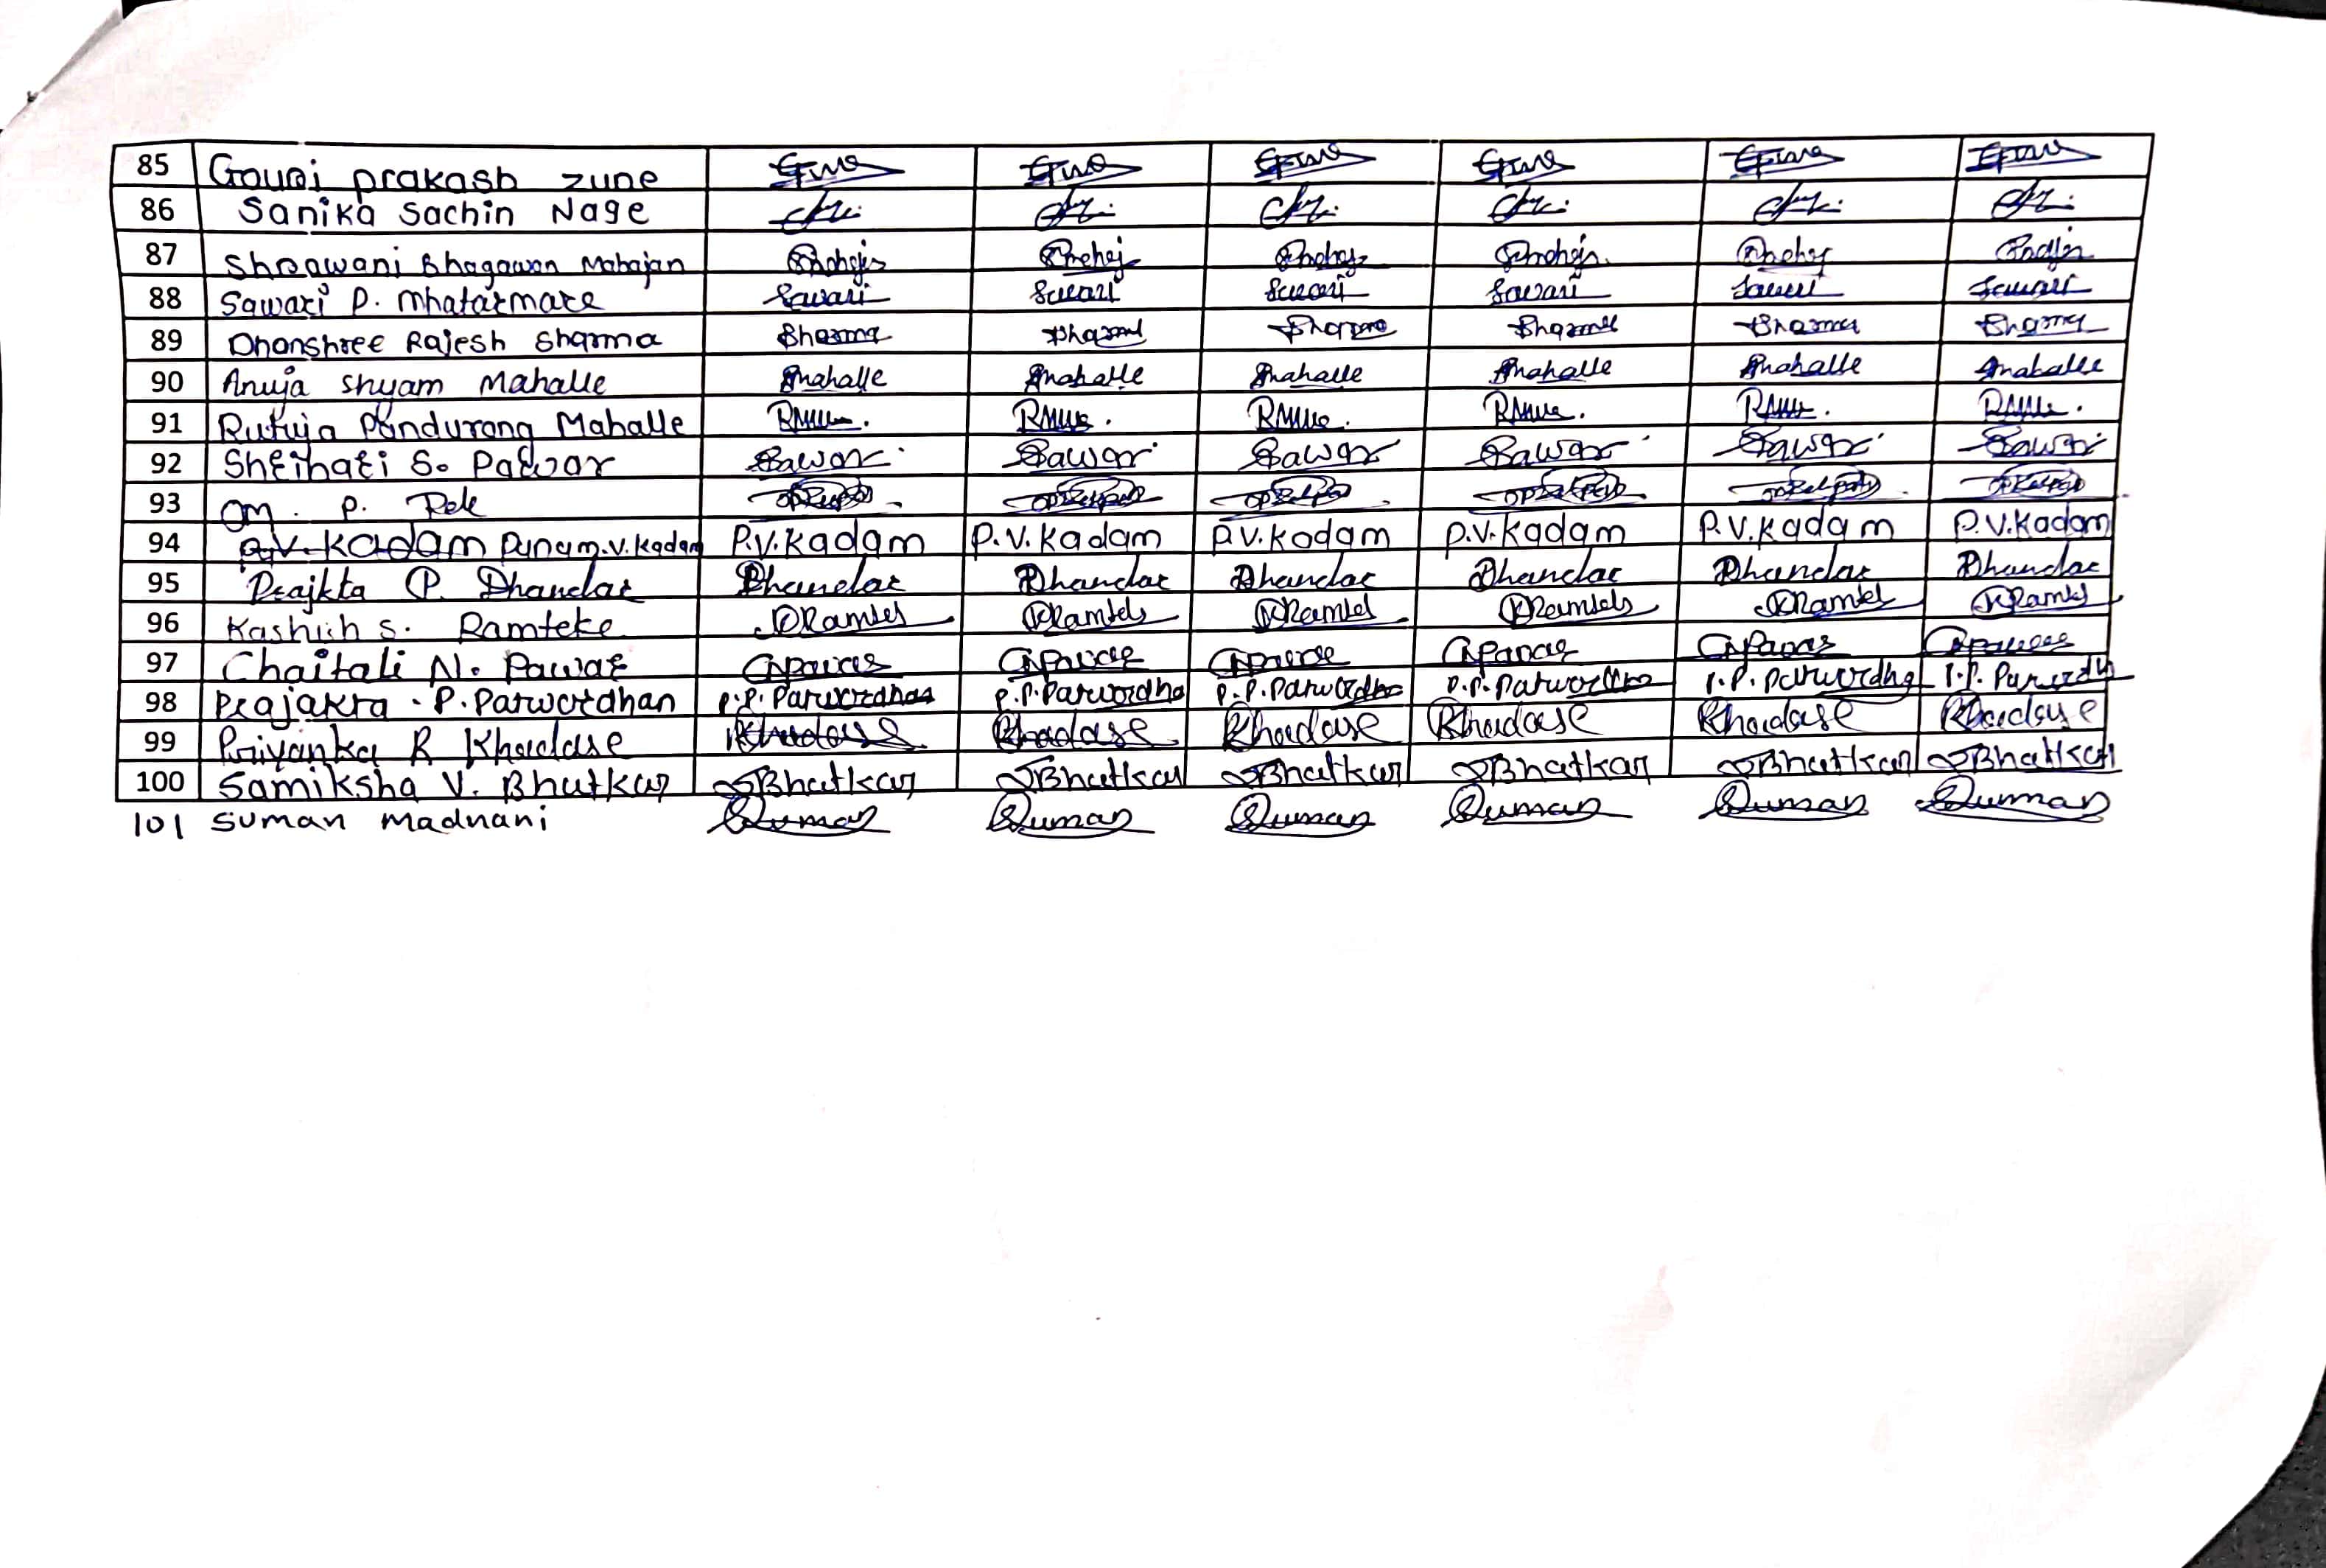 85 Gouri prakash zune
86 Sanika Sachin Nage
87 Shrawani Bhagawan Mahajan
88 Sawari P. Mhatarmare Sawari Sawari Sawari Sawari Sawari
89 Dhanshree Rajesh Sharma Sharma Sharma Sharma Sharma Sharma Sharma
90 Anuja Shyam Mahalle Amahalle Amahalle Amahalle Amahalle Amahalle Amahalle
91 Rutuja Pandurang Mahalle
92 Shrihari S. Pawar Pawar Pawar Pawar Pawar Pawar Pawar
93 Om. P.
94 P.V. Kadam Punam.V.Kadam P.V.Kadam P.V.Kadam P.V.Kadam P.V.Kadam P.V.Kadam P.V.Kadam
95 Prajkta P. Dhandar Dhandar Dhandar Dhandar Dhandar Dhandar Dhandar
96 Kashish S. Ramteke
97 Chaitali N. Pawar
98 Prajakta . P. Patwordhan P.P. Patwordhan P.P. Patwordha P.P. Patwordha P.P. Patwordha P.P. Patwordha P.P. Patwordh
99 Priyanka R Khadase Khadase Khadase Khadase Khadase Khadase Khadase
100 Samiksha V. Bhutkar SBhutkar SBhutkar SBhutkar SBhutkar SBhutkar SBhutkar
101 Suman Madnani Suman Suman Suman Suman Suman Suman